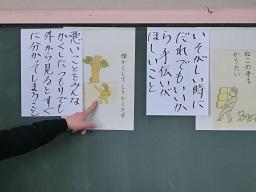 ねこの手も
かりたい
いそがしい時に
だれでもいいか
ら手伝いが
ほしいこと
頭かくしてしりかくさず
悪いことをみんな
かくしたつもりでも
外から見るとすぐ
に分かってしまうこと